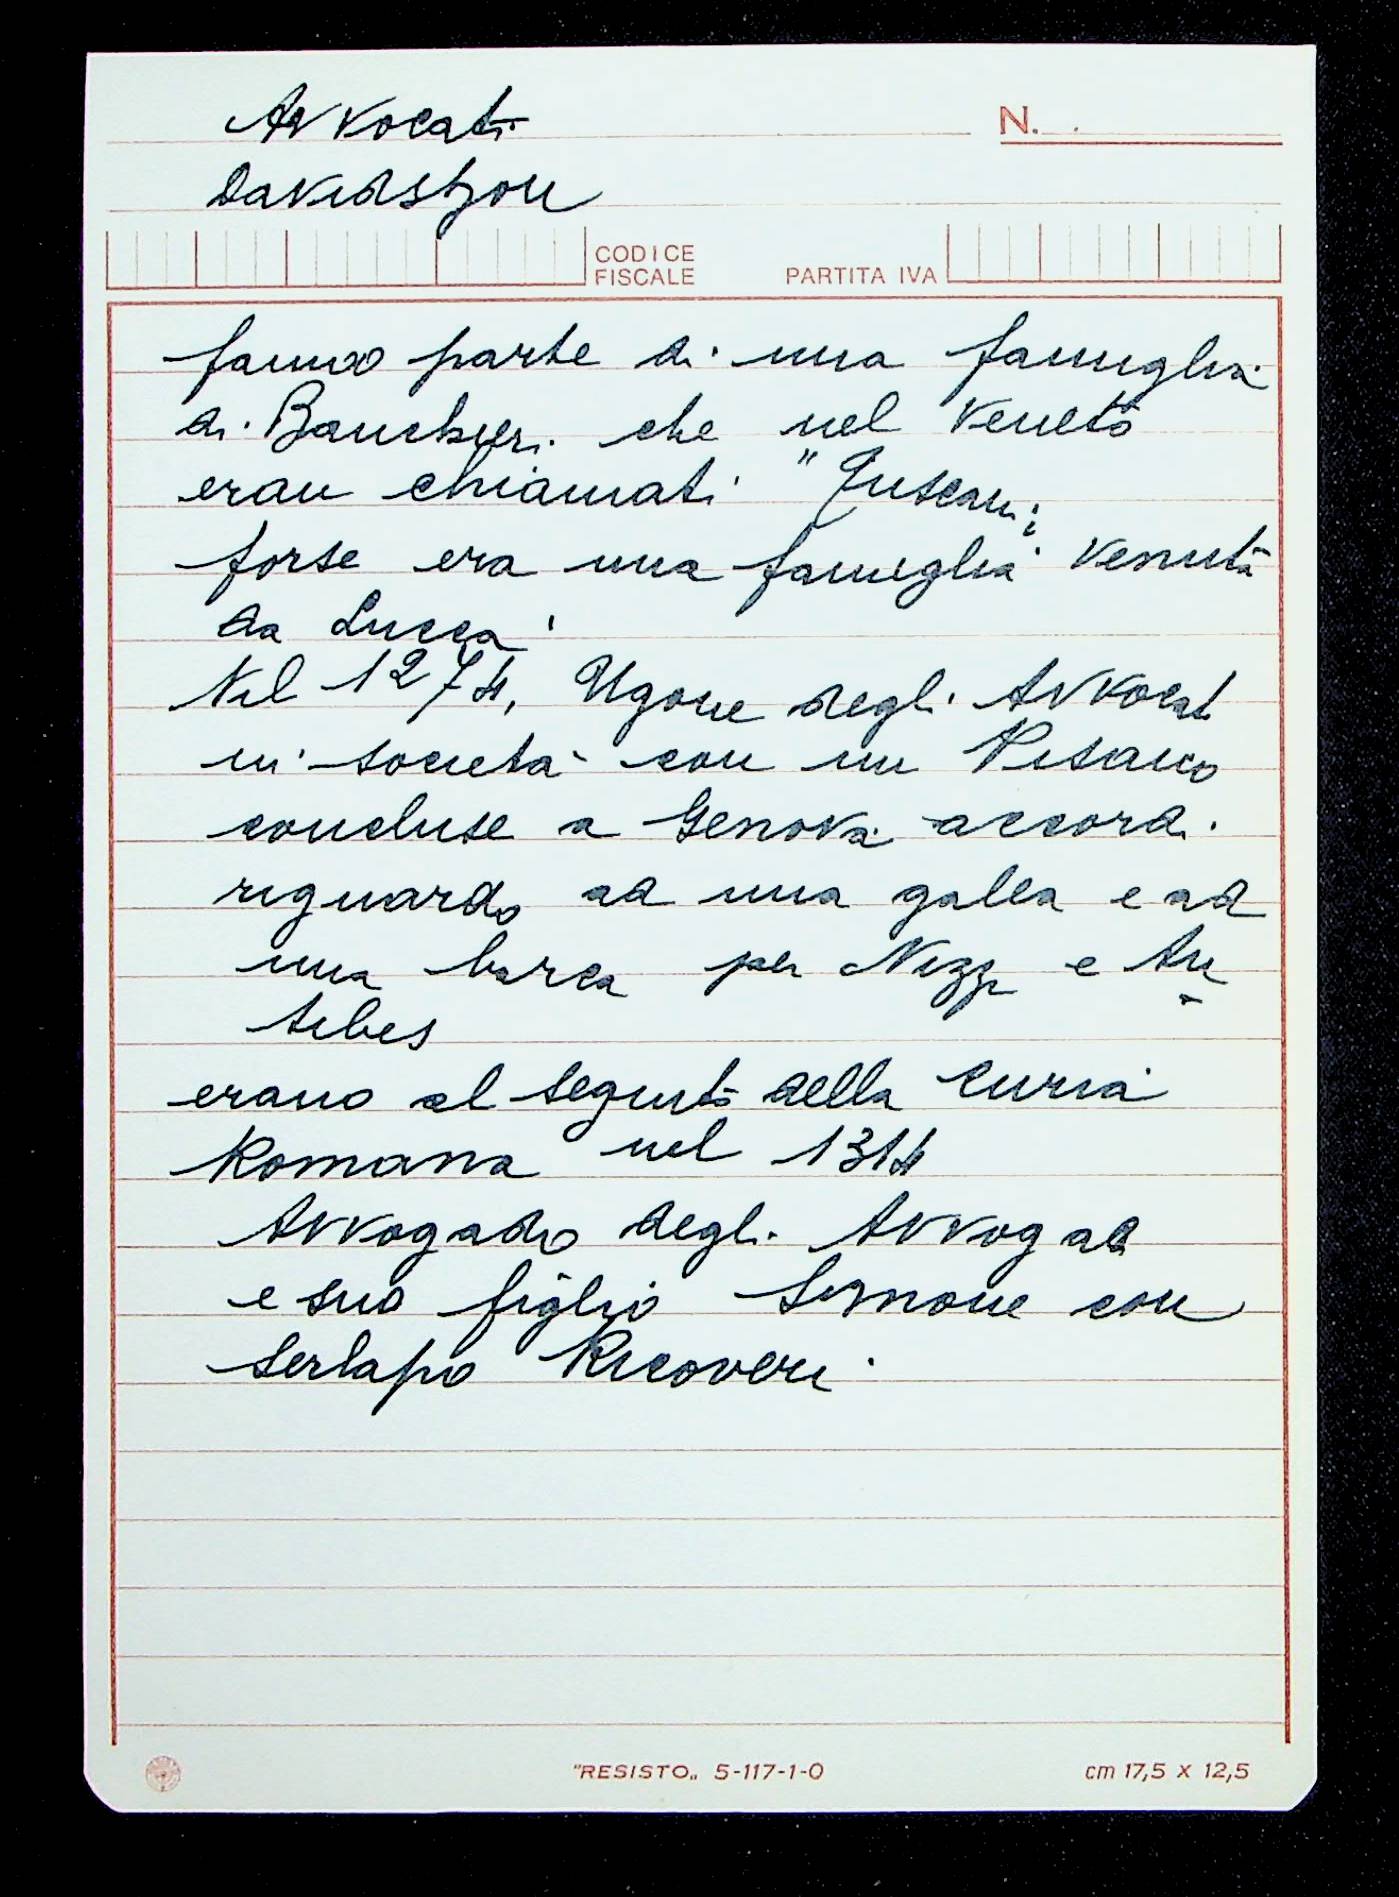 Avvocati
N.
Davidshon
CODICE
FISCALE
PARTITA IVA
fanno parte di una famiglia
di Banchieri che nel Veneto
eran chiamati "Tuscani;
forse era una famiglia venuta
da Lucca.
Nel 1274, Ugone degli Avvocat
in società con un Pisano
concluse a Genova accordi
riguardo ad una galea e ad
una barca per Nizza e An
tibes
erano al seguito della Curia
Romana nel 1314
Avvogado degli Avvogad
e suo figlio Simone con
Serlapo Ricoveri.
"RESISTO„ 5-117-1-0
cm 17,5 x 12,5